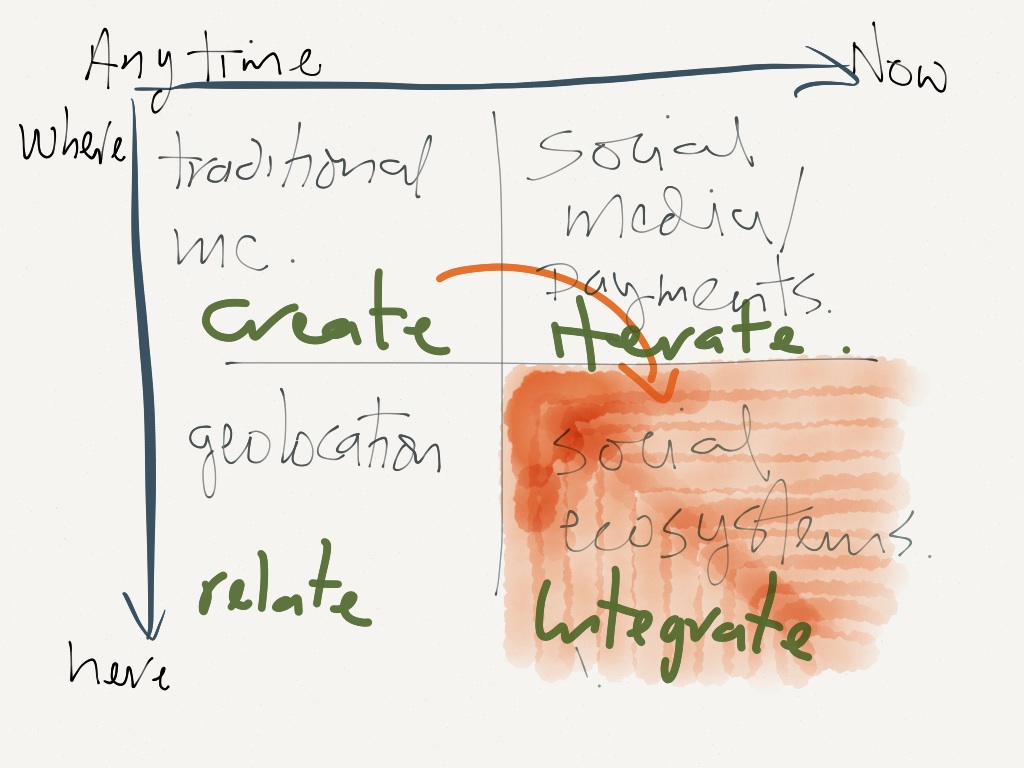 Anytime
Now
Where
traditional
mc.
create
social
media/
payments.
Iterate.
geolocation
relate
social
ecosystems.
Integrate
here